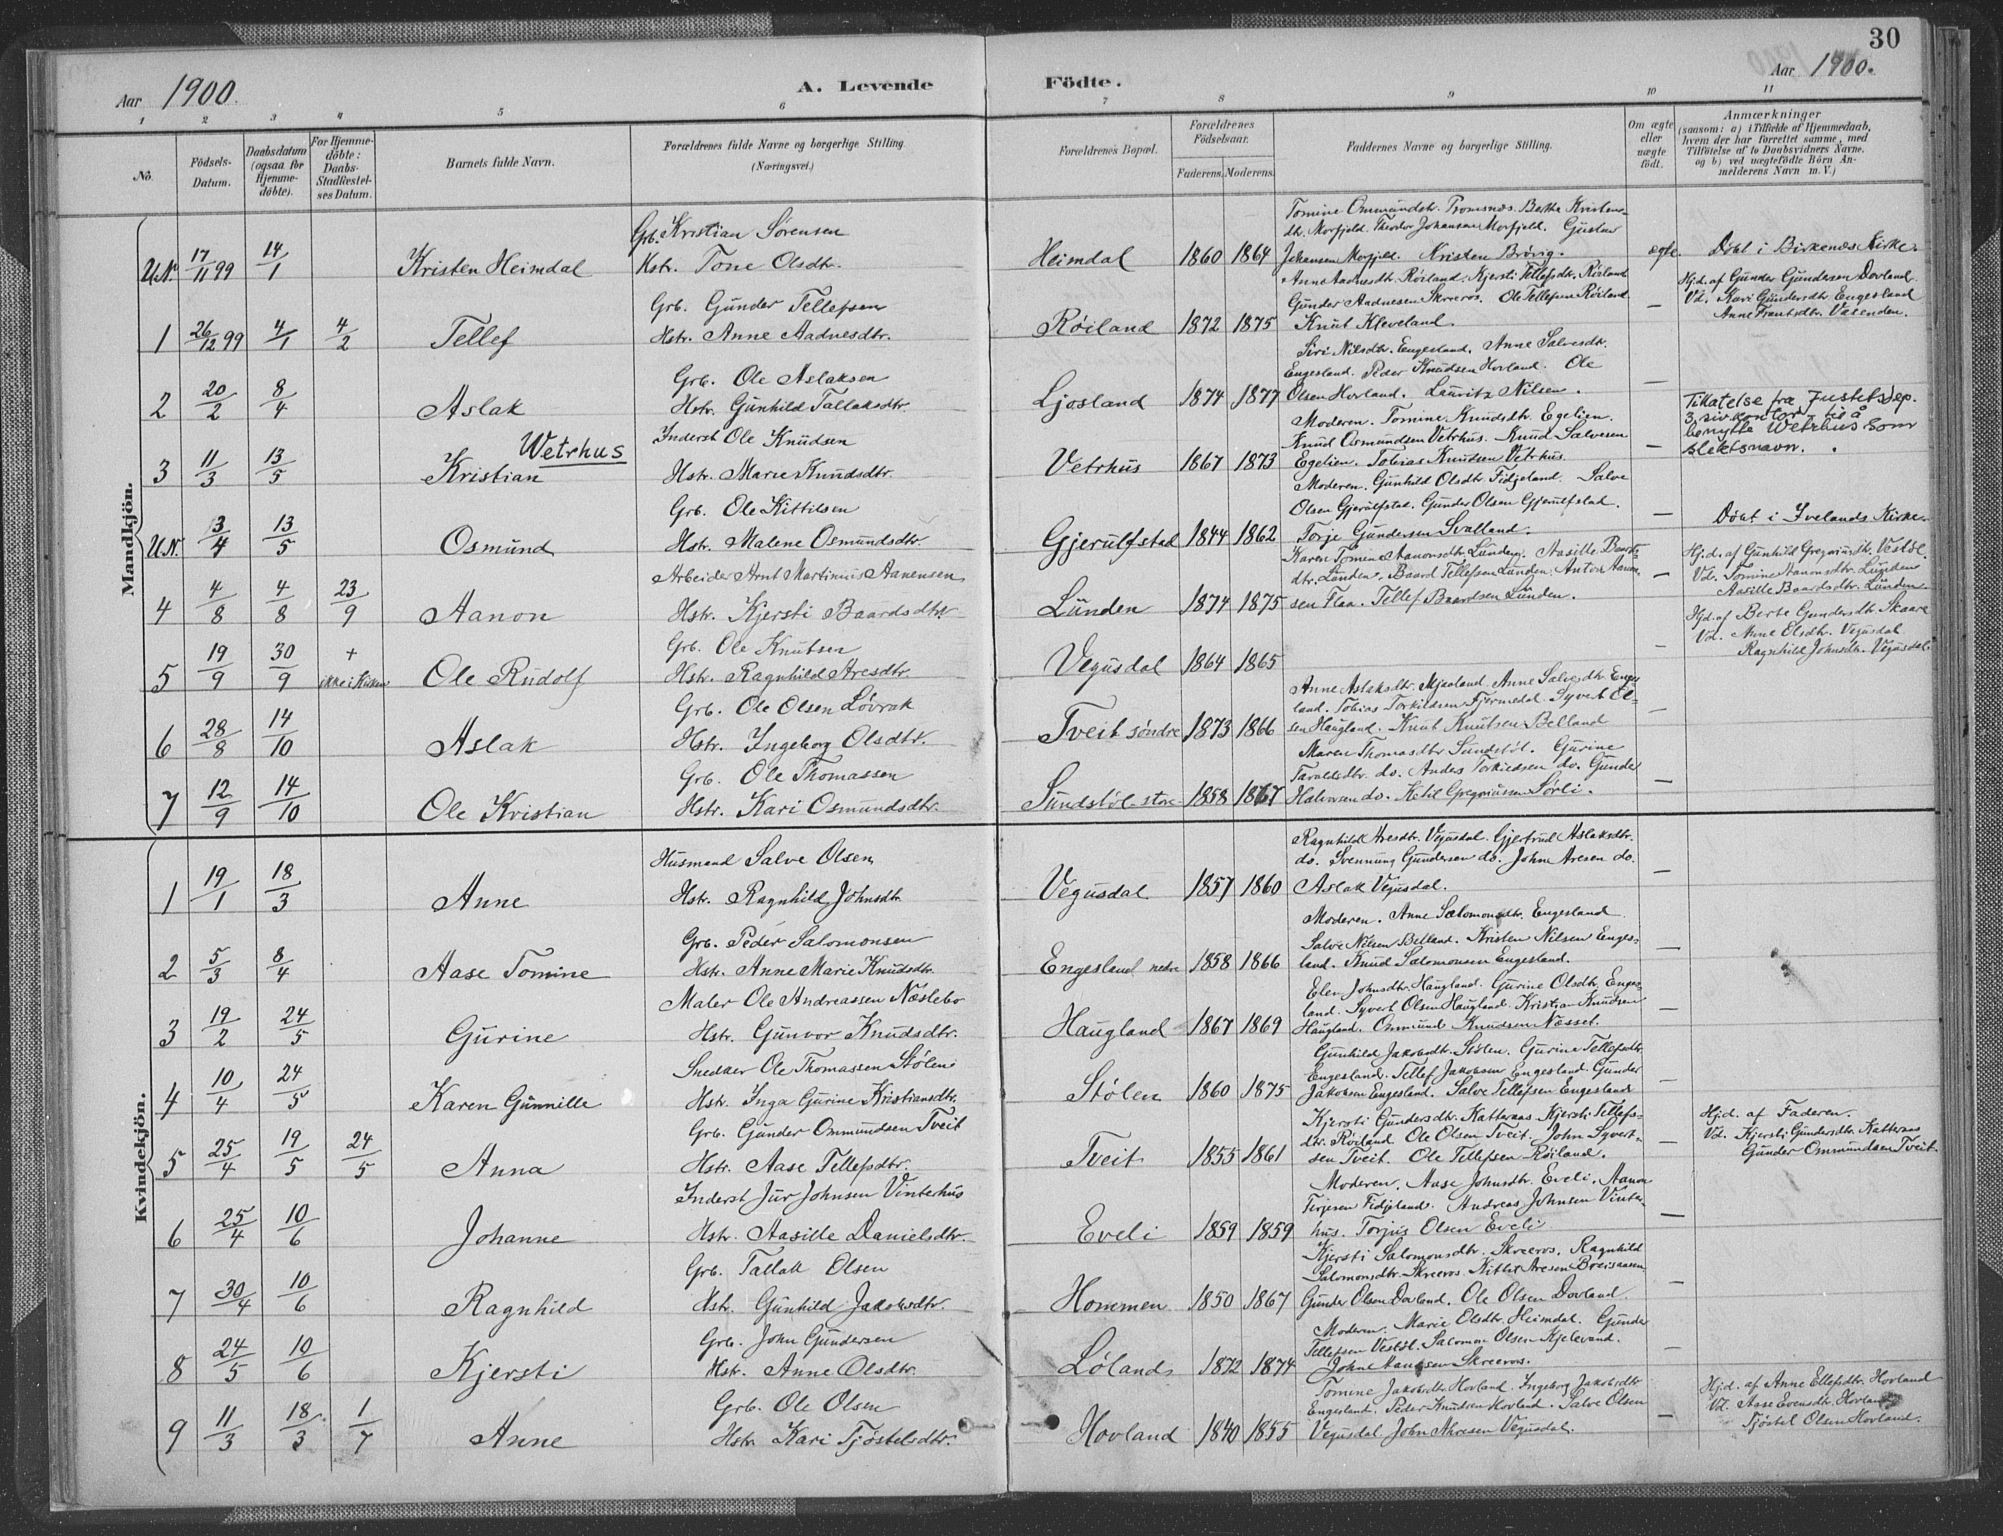 30
Aar 1900. A. Levende Födte. Aar 1900.
1 2 3 4 5 6 7 8 9 10 11
No.
Födsels-Datum.
Daabsdatum (ogsaa for Hjemmedöbte).
For Hjemmedöbte: Daabs-Stadfestelses Datum.
Barnets fulde Navn.
Forældrenes fulde Navne og borgerlige Stilling (Næringsvei.)
Forældrenes Bopæl.
Forældrenes Födselsaar.
Faderens. Moderens.
Faddernes Navne og borgerlige Stilling.
Om ægte eller uægte födt.
Anmærkninger
(saasom: a) i Tilfælde af Hjemmedaab, hvem der har forrettet samme, med Tilföielse af to Daabsvidners Navne, og b) ved uægtefödte Börn Anmelderens Navn m. V.)
Mandkjön.
U.N. 17/11 99 14/1 Kristen Heimdal
Grb. Kristian Sørensen
Hstr. Tone Olsdtr.
Heimdal 1860 1864
Tomine Ommundstr. Tromsnæs. Berthe Kristens-
dtr. Morfjeld. Theodor Johansen Morfjeld. Gustav
Johansen Morfjeld. Kristen Brøvig.
ægte.
Døbt i Birkenæs Kirke.
1 26/12 99 4/1 4/2 Tellef
Grb. Gunder Tellefsen
Hstr. Anne Aadnesdtr.
Røiland 1872 1875
Anne Aadnesdtr. Røiland. Kjersti Tellefsdtr. Røiland
Gunder Aadnesen Skreros. Ole Tellefsen Røiland
Knut Kleveland.
—
Hjd. af Gunder Gundersen Dovland.
Vd. Kari Gundersdtr. Engesland
Anne Træntsdtr. Vasenden.
2 20/2 8/4 Aslak
Grb. Ole Aslaksen
Hstr. Gunhild Tallaksdtr.
Ljosland 1874 1877
Siri Nilsdtr. Engesland. Anne Salvesdtr.
Engesland. Peder Knudsen Hovland. Ole
Olsen Hovland. Lauritz Nilsen.
—
3 11/3 13/5 Kristian Wetrhus
Inderst Ole Knudsen
Hstr. Marie Knudsdtr.
Vetrhus 1867 1873
Moderen. Tomine Knudsdtr. Egelien.
Knud Osmundsen Vetrhus. Knud Salvesen
Egelien. Tobias Knudsen Vetrhus.
—
Tillatelse fra Justitsdep.
3. sivkontor til å
benytte Wetrhus som
slektsnavn.
U.N. 3/4 13/5 Osmund
Grb. Ole Kittilsen
Hstr. Malene Osmundsdtr
Gjerulfsted 1844 1862
Moderen. Gunhild Olsdtr. Fidjeland. Salve
Olsen Gjerulfstad. Gunder Olsen Gjerulfstad.
Torje Gundersen Svalland.
—
Døbt i Ivelands Kirke
4 4/8 4/8 23/9 Aanon
Arbeider Arnt Martinius Aanensen
Hstr. Kjersti Baardsdtr.
Lunden 1874 1875
Karen Tomine Aanonsdtr. Lunden. Aasille Baards-
dtr. Lunden. Baard Tellefsen Lunden. Anton Aanon-
sen Flaa. Tellef Baardsen Lunden.
—
Hjd. af Gunhild Gregoriusdtr. Vestøl.
Vd. Tomine Aanonsdtr. Lunden
Aasille Baardsdtr. Lunden
5 19/9 30/9 + ikke i Kirken Ole Rudolf
Grb. Ole Knutsen
Hstr. Ragnhild Aresdtr.
Vegusdal 1864 1865
—
Hjd. af Berte Gundersdtr. Skaare
Vd. Anne Elsdtr. Vegusdal
Ragnhild Johnsdtr. Vegusdal
6 28/8 14/10 Aslak
Grb. Ole Olsen Løvrak
Hstr. Ingeborg Olsdtr.
Tveit søndre 1873 1866
Anne Aslaksdtr. Mjaaland. Anne Salvesdtr. Enges-
land. Tobias Torkildsen Fjermedal. Syvert El-
sen Haugland. Knut Knutsen Belland
—
7 12/9 14/10 Ole Kristian
Grb. Ole Thomassen
Hstr. Kari Osmundsdtr.
Sundstøl store 1858 1867
Maren Thomasdtr Sundstøl. Gurine
Taraldsdtr. do. Anders Torkildsen do. Gunder
Halvorsen do. Ketil Gregoriussen Sørli.
—
Kvindekjön.
1 19/1 18/3 Anne
Husmand Salve Olsen
Hstr. Ragnhild Johnsdtr.
Vegusdal 1857 1860
Ragnhild Aresdtr. Vegusdal. Gjertrud Aslaksdtr.
do. Svennung Gundersen do. John Aresen do.
Aslak Vegusdal.
—
2 5/3 8/4 Aase Tomine
Grb. Peder Salomonsen
Hstr. Anne Marie Knudsdtr.
Engesland nedre 1858 1866
Moderen. Anne Salomonsdtr. Engesland
Salve Nilsen Belland. Kristen Nilsen Enges-
land. Knud Salomonsen Engesland.
—
3 19/2 24/5 Gurine
Maler Ole Andreassen Næslebo
Hstr. Gunvor Knudsdtr.
Haugland 1867 1869
Elen Johnsdtr. Haugland. Gurine Olsdtr. Enges-
land. Syvert Olsen Haugland. Kristjan Knudsen
Haugland. Ommund Knudsen Næsset.
—
4 10/4 24/5 Karen Gunnille
Snedker Ole Thomassen Stølen
Hstr. Inga Gurine Kristiansdtr.
Stølen 1860 1875
Gunhild Jakobsdtr. Stølen. Gurine Tellefsdtr.
Engesland. Tellef Jakobsen Engesland. Gunder
Jakobsen Engesland. Salve Tellefsen Engesland
—
5 25/4 19/5 24/5 Anna
Grb. Gunder Ommundsen Tveit
Hstr. Aase Tellefsdtr.
Tveit 1855 1861
Kjersti Gundersdtr. Katteraas. Kjersti Tellefs-
dtr. Røiland. Ole Olsen Tveit. John Syvert-
sen Tveit. Ole Tellefsen Røiland.
—
Hjd. af Faderen.
Vd. Kjersti Gundersdtr. Katteraas
Gunder Ommundsen Tveit
6 25/4 10/6 Johanne
Inderst Jur Johnsen Vinterhus
Hstr. Aasille Danielsdtr.
Eveli 1859 1859
Moderen. Aase Johnsdtr. Eveli. Aanon
Terjesen Fidjeland. Andreas Johnsen Vinter-
hus. Torjus Olsen Eveli
—
7 30/4 10/6 Ragnhild
Grb. Tallak Olsen
Hstr. Gunhild Jakobsdtr.
Hommen 1850 1867
Kjersti Salomonsdtr. Skreros. Ragnhild
Salomonsdtr. Skreros. Kittil Aresen
Gunder Olsen Dovland. Ole Olsen Dovland.
—
8 24/5 10/6 Kjersti
Grb. John Gundersen
Hstr. Anne Olsdtr.
Løland 1872 1874
Moderen. Marie Olsdtr. Heimdal. Gunder
Tellefsen Vestøl. Salomon Olsen Kjelevand.
John Hansen Skreros.
—
9 11/3 18/3 1/7 Anne
Grb. Ole Olsen
Hstr. Kari Tjøstelsdtr.
Hovland 1840 1855
Tomine Jakobsdtr. Hovland. Ingeborg Jakobsdtr
Engesland. Peder Knudsen Hovland. Salve Olsen
Vegusdal John Aresen Vegusdal.
—
Hjd. af Anne Ellefsdtr. Hovland
Vd. Aase Evensdtr. Hovland
Tjøstel Olsen Hovland.